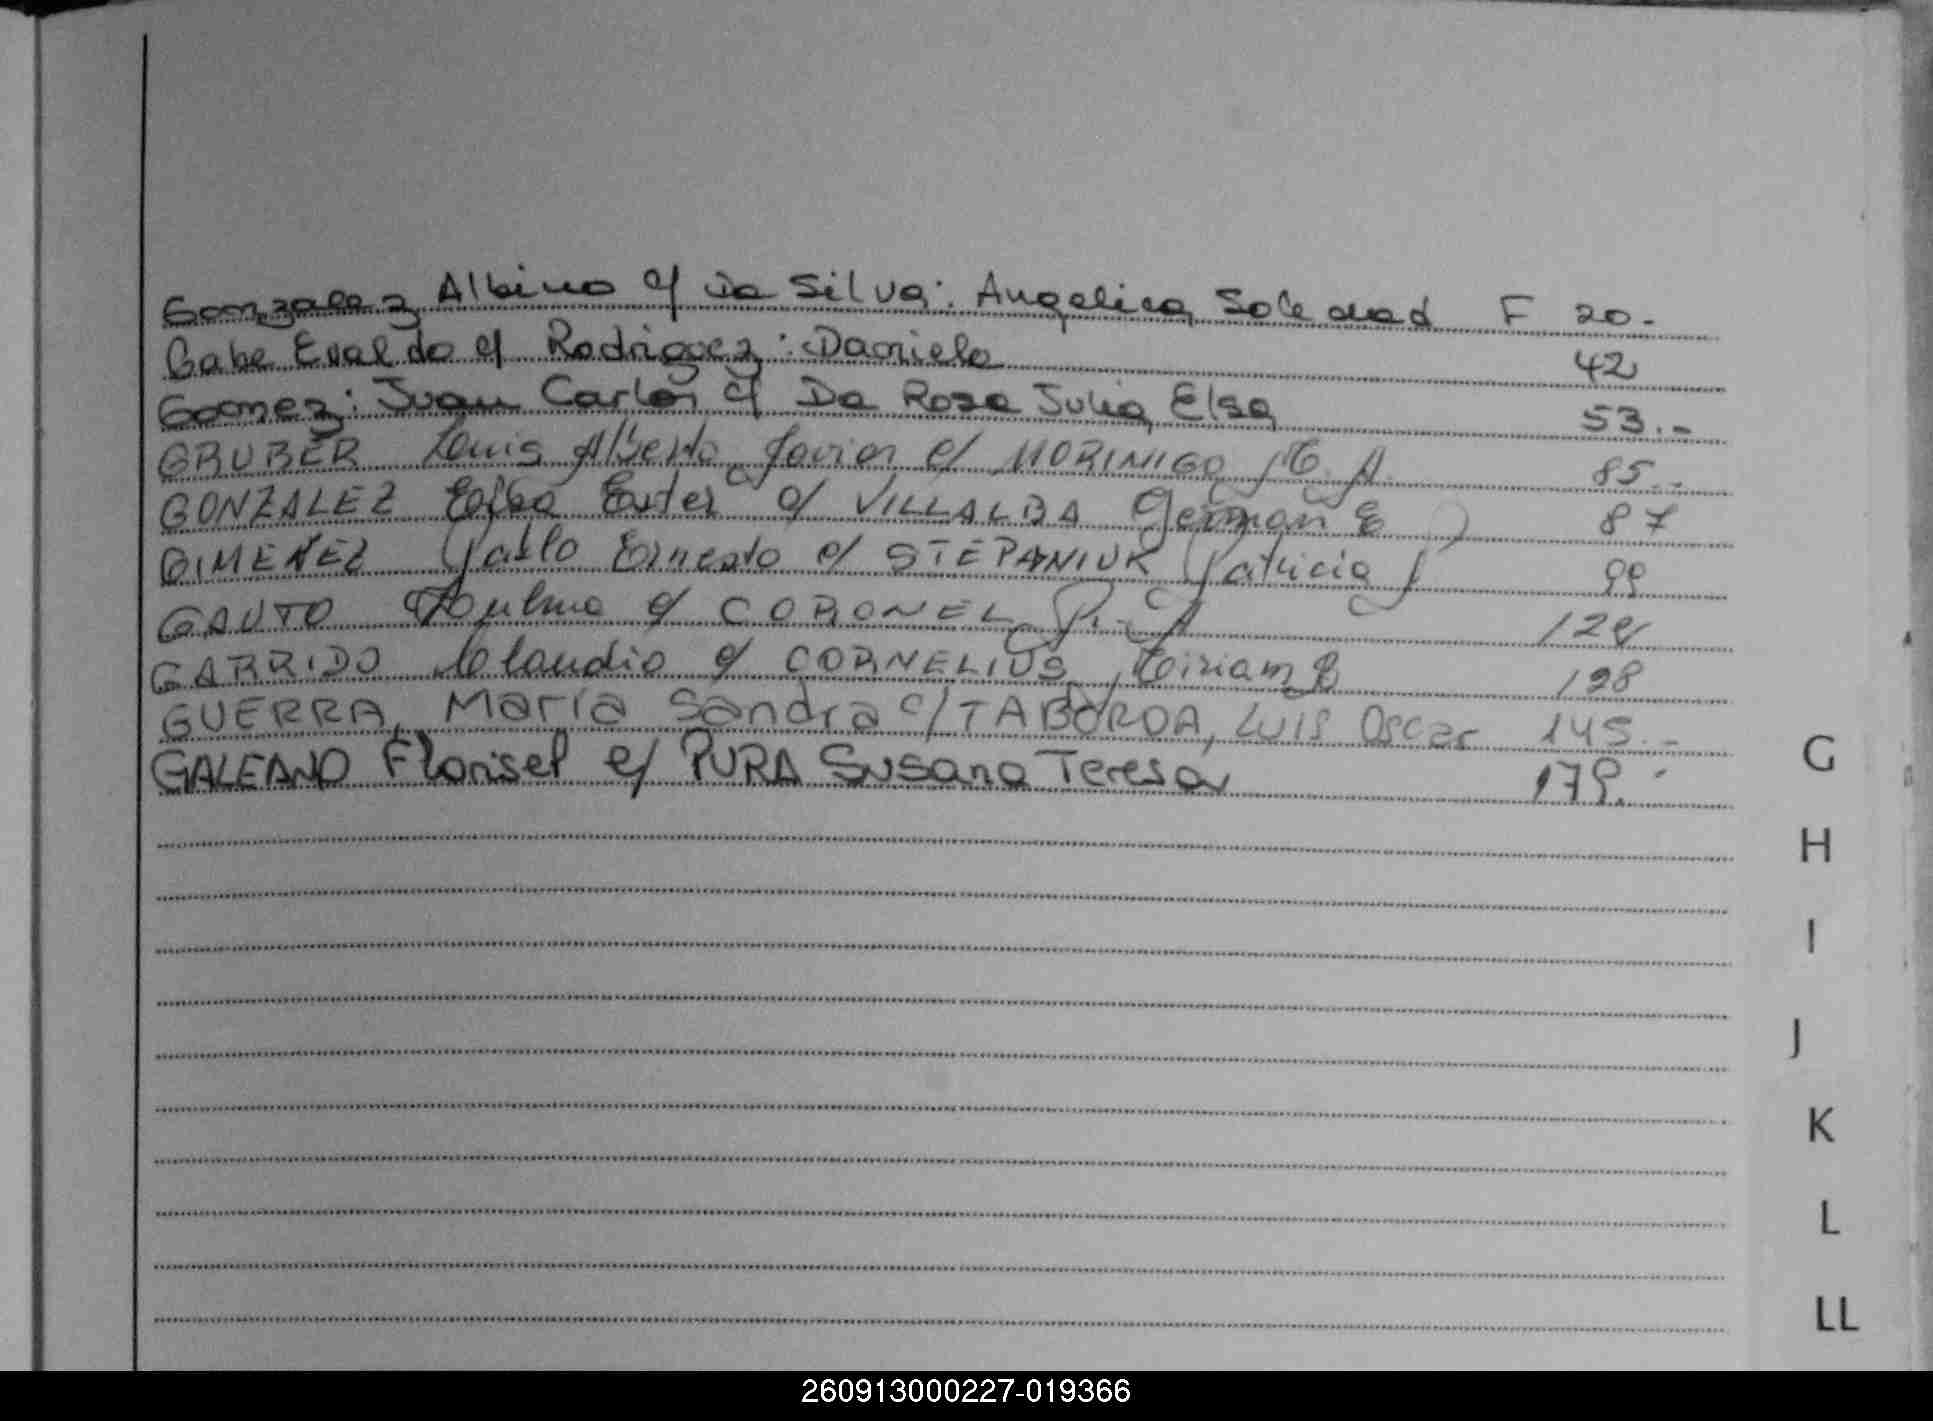 Gonzalez Albino c/ Da Silva: Angelica Soledad F 20.-
Gabe Evaldo c/ Rodriguez: Daniela 42
Gomez: Juan Carlos c/ Da Rosa Julia Elsa 53.-
GRUBER Luis Alberto Javier c/ MORINIGO, M. A. 85.-
GONZALEZ Ester c/ VILLALBA German E 87
GIMENEZ Pablo Ernesto c/ STEPANIUK Patricia J 99
GAUTO c/ CORONEL A
GARRIDO Claudio c/ CORNELIUS, Miriam B 128
GUERRA, María Sandra c/ TABORDA, LUIS Oscar 145.-
GALEANO Florisel c/ PURA Susana Teresa 179.-
G
H
I
J
K
L
LL
260913000227-019366